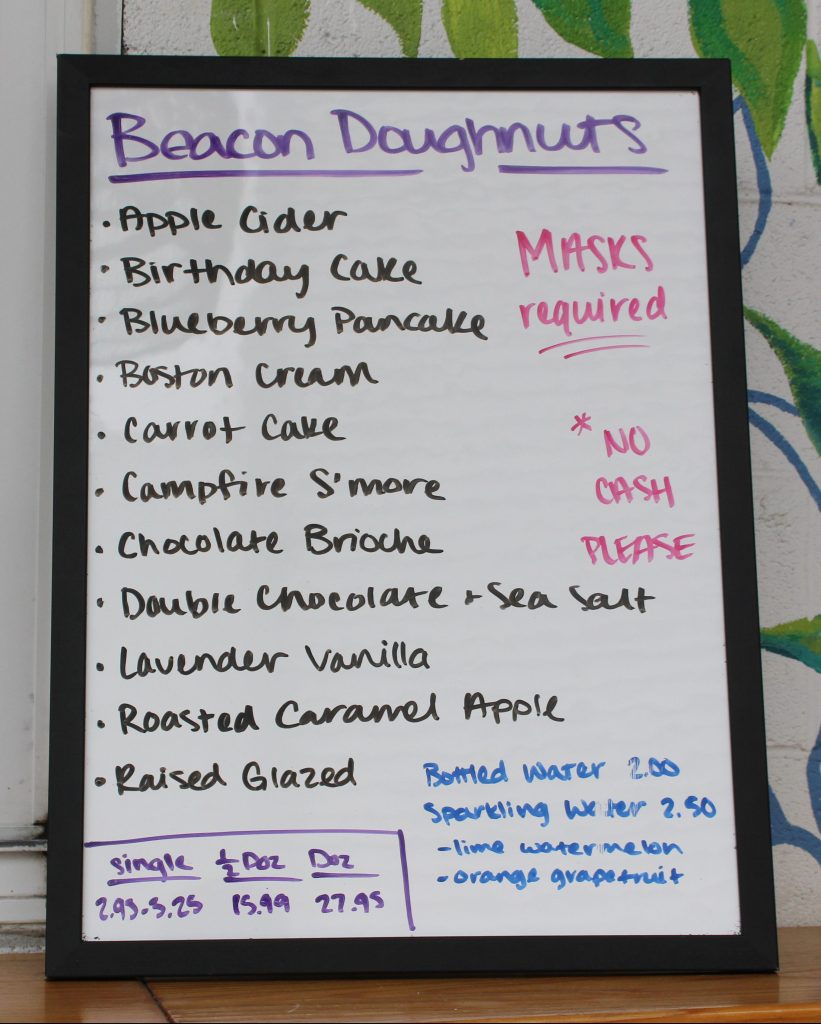 Beacon Doughnuts
• Apple Cider
• Birthday Cake
• Blueberry Pancake
• Boston Cream
• Carrot Cake
• Campfire S'more
• Chocolate Brioche
• Double Chocolate + Sea Salt
• Lavender Vanilla
• Roasted Caramel Apple
• Raised Glazed
MASKS
required
* NO
CASH
PLEASE
Bottled Water 2.00
Sparkling Water 2.50
- lime watermelon
- orange grapefruit
single ½ Doz Doz
2.95-5.25 15.99 27.95